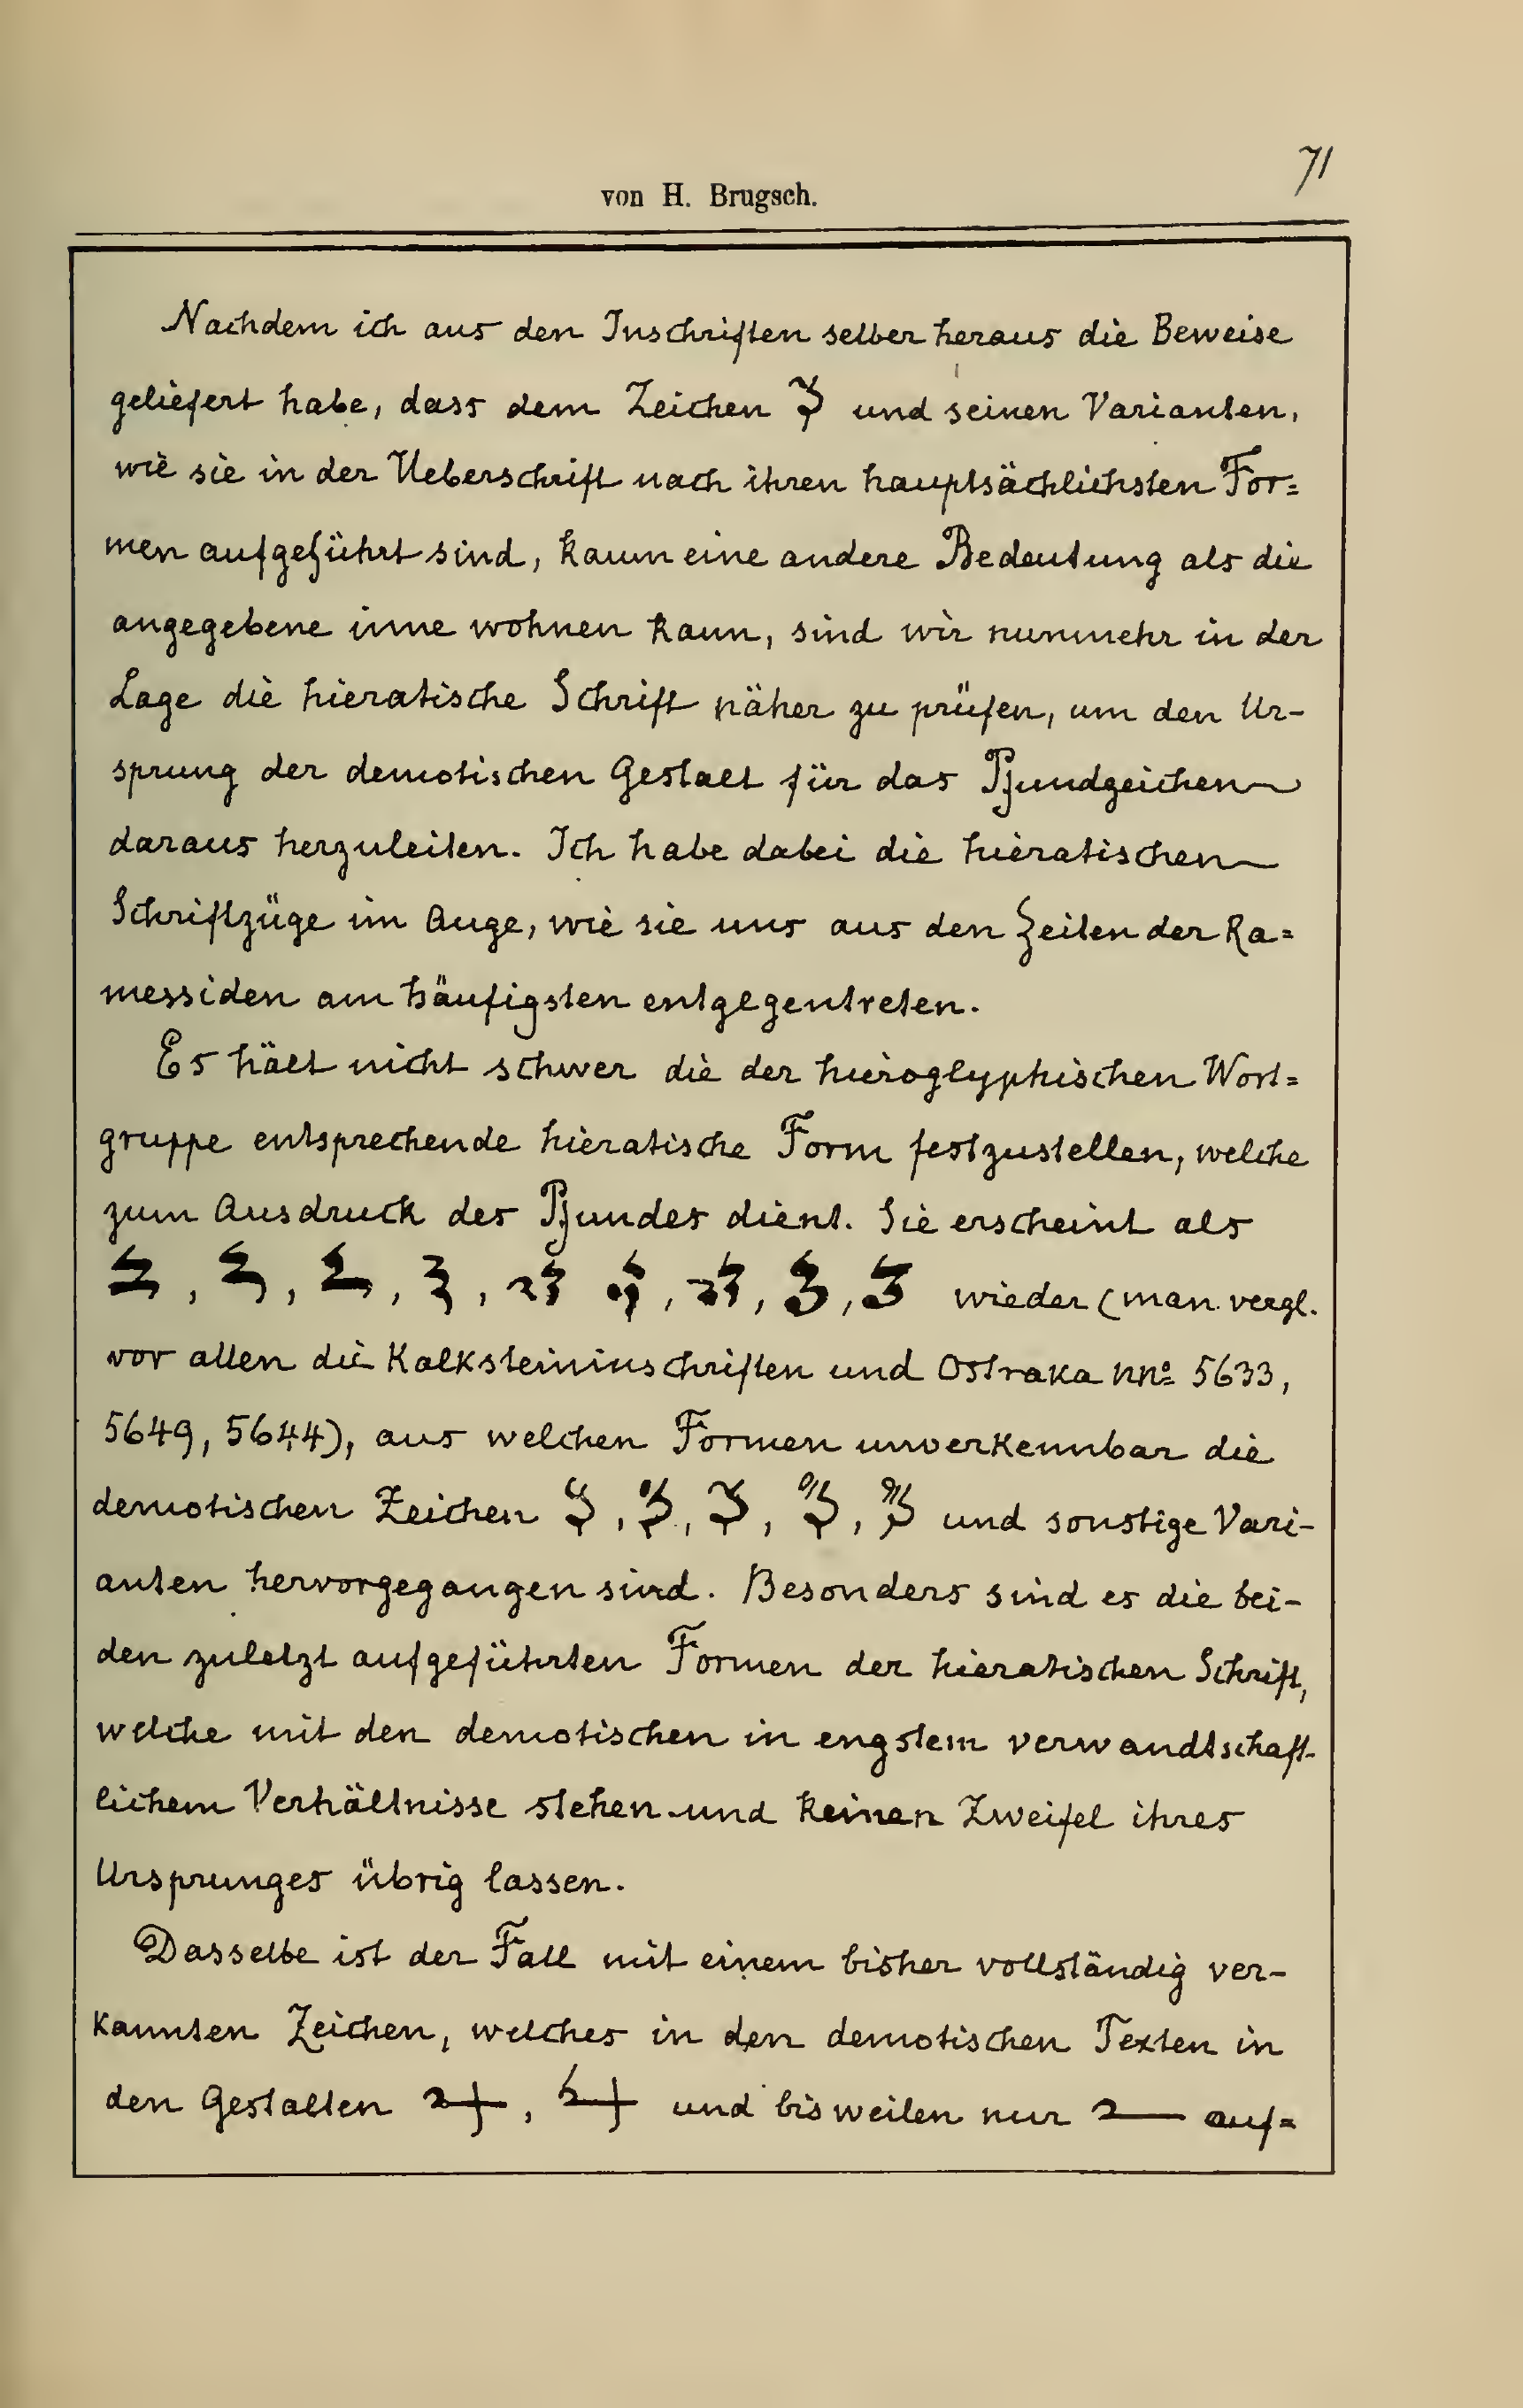 71
von H. Brugsch.
Nachdem ich aus den Inschriften selber heraus die Beweise
geliefert habe, dass dem Zeichen und seinen Varianten,
wie sie in der Ueberschrift nach ihren hauptsächlichsten For=
men aufgeführt sind, kaum eine andere Bedeutung als die
angegebene inne wohnen kann, sind wir nunmehr in der
Lage die hieratische Schrift näher zu prüfen, um den Ur-
sprung der demotischen Gestalt für das Pfundzeichen
daraus herzuleiten. Ich habe dabei die hieratischen
Schriftzüge im Auge, wie sie uns aus den Zeiten der Ra=
messiden am häufigsten entgegentreten.
Es hält nicht schwer die der hieroglyphischen Wort=
gruppe entsprechende hieratische Form festzustellen, welche
zum Ausdruck des Pfundes dient. Sie erscheint als
, , , , , , , wieder (man vergl.
vor allen die Kalksteininschriften und Ostraka nnº 5633,
5649, 5644), aus welchen Formen unverkennbar die
demotischen Zeichen , , , , und sonstige Vari-
anten hervorgegangen sind. Besonders sind es die bei-
den zuletzt aufgeführten Formen der hieratischen Schrift,
welche mit den demotischen in engstem verwandtschaft-
lichem Verhältnisse stehen und keinen Zweifel ihres
Ursprunges übrig lassen.
Dasselbe ist der Fall mit einem bisher vollständig ver-
kannten Zeichen, welches in den demotischen Texten in
den Gestalten , und bisweilen nur auf=